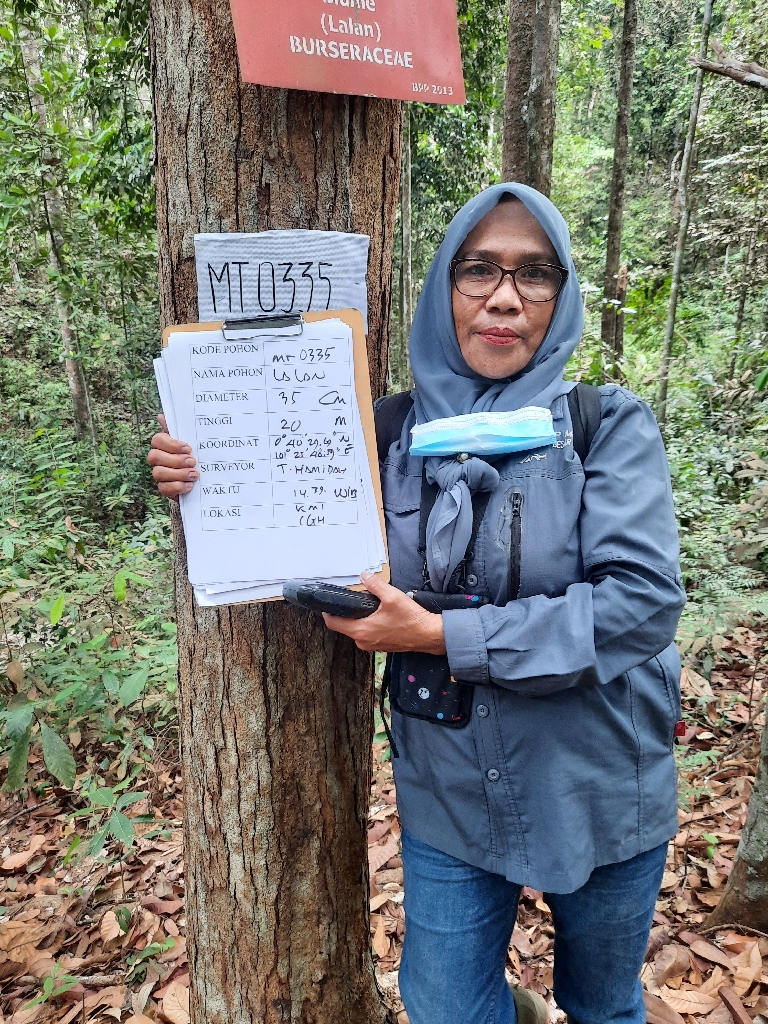 Blume
(Lalan)
BURSERACEAE
BPP 2013
MT 0335
KODE POHON MT 0335
NAMA POHON LaLaN
DIAMETER 35 Cm
TINGGI 20 M
KOORDINAT 0° 40' 29.69" N
101° 25' 48.39" E
SURVEYOR T. HAMIDAH
WAKTU 14.39 WIB
LOKASI KM 1
CGH